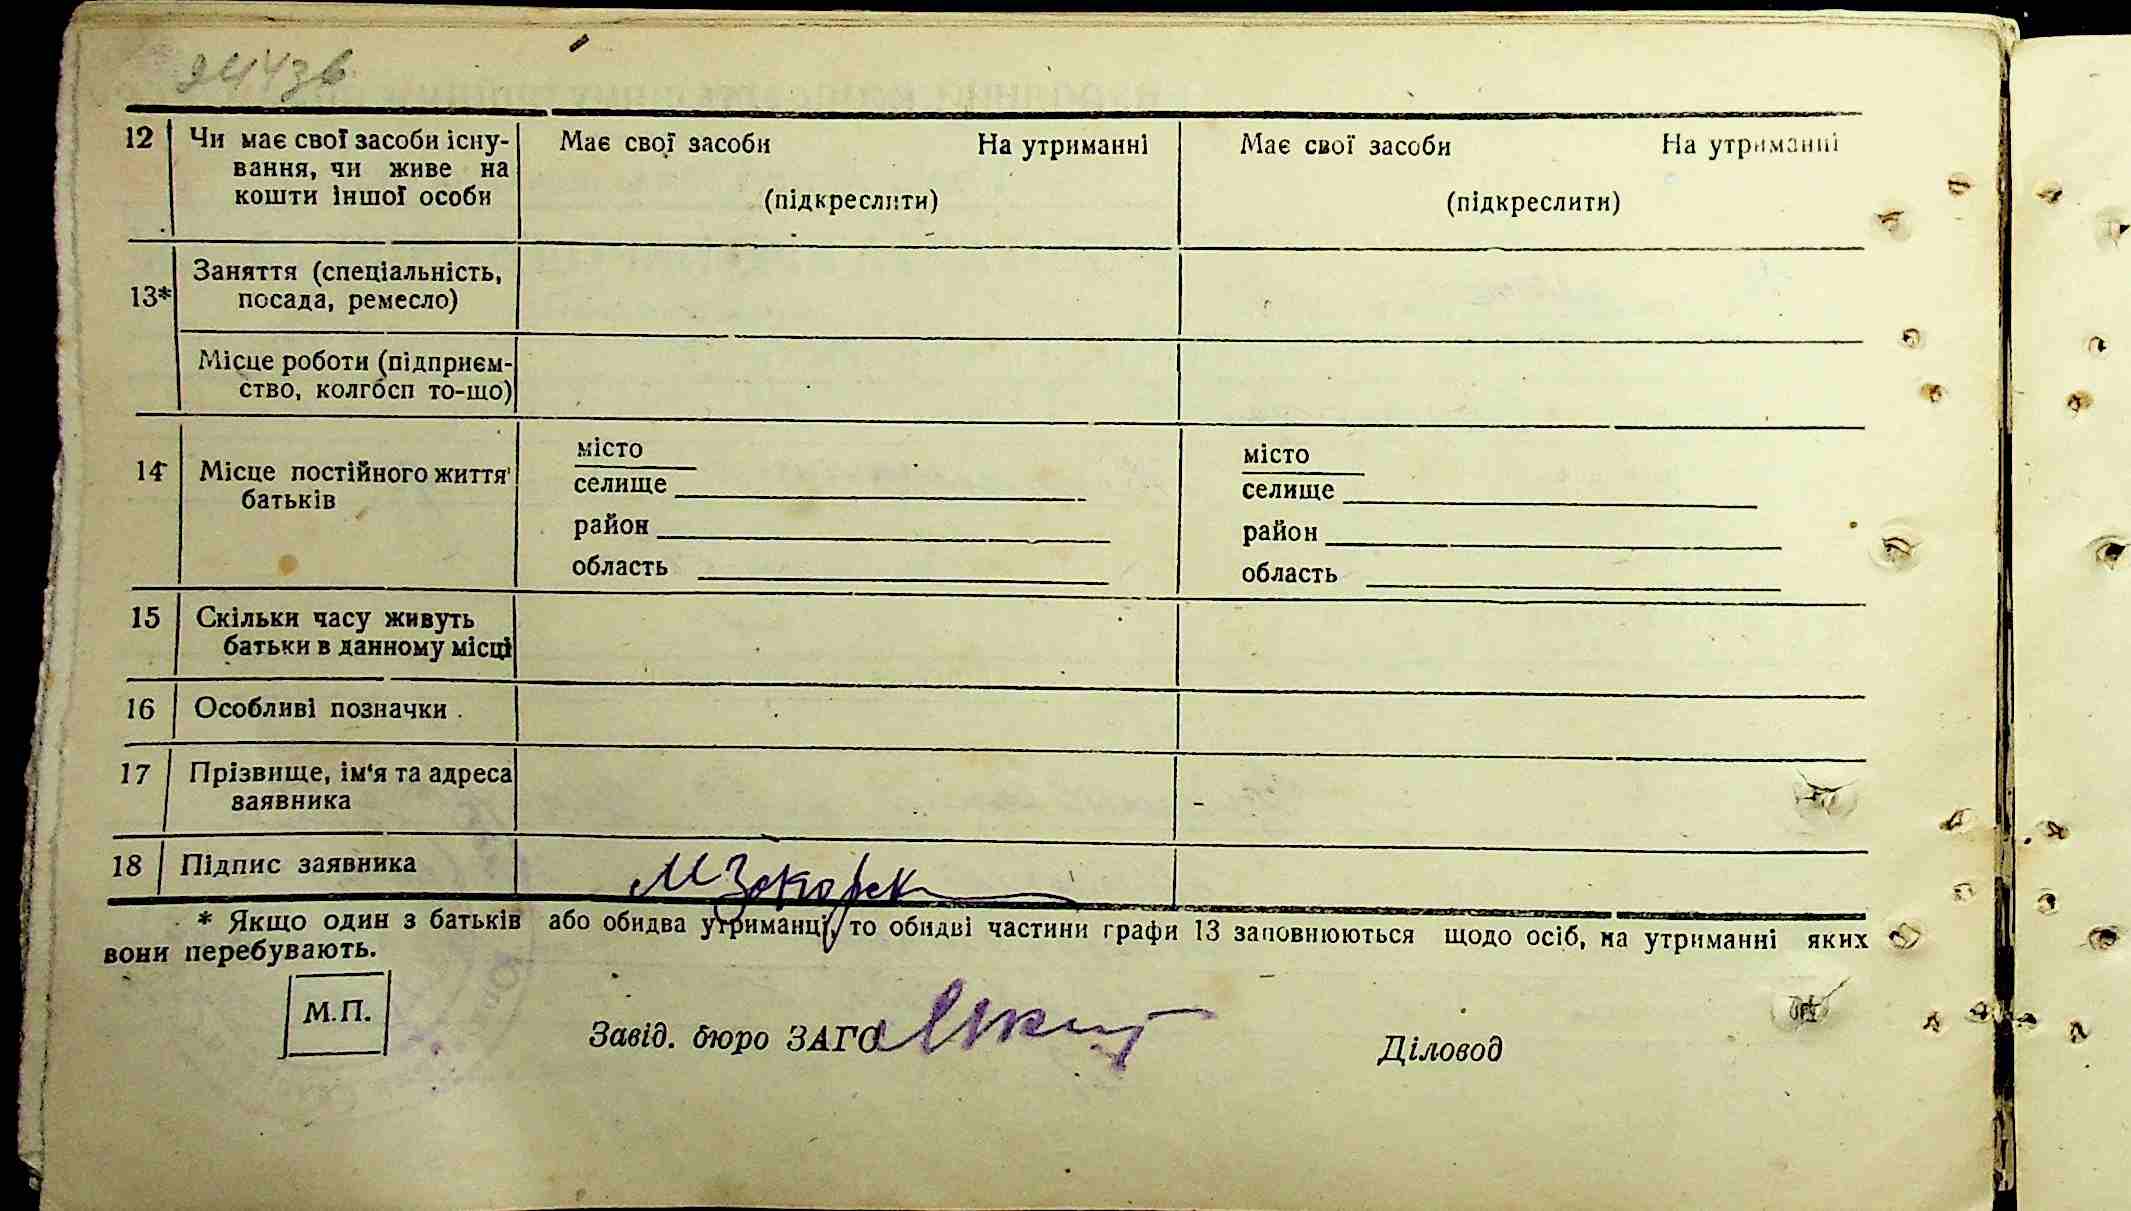 244зв
12 Чи має свої засоби існу- Має свої засоби На утриманні Має свої засоби На утриманні
вання, чи живе на
кошти іншої особи (підкреслити) (підкреслити)
Заняття (спеціальність,
13* посада, ремесло)
Місце роботи (підприєм-
ство, колгосп то-що)
місто місто
14 Місце постійного життя селище селище
батьків
район район
область область
15 Скільки часу живуть
батьки в данному місці
16 Особливі позначки
17 Прізвище, ім'я та адреса
заявника
18 Підпис заявника
* Якщо один з батьків або обидва утриманці, то обидві частини графи 13 заповнюються щодо осіб, на утриманні яких
вони перебувають.
М.П.
Завід. бюро ЗАГС Діловод